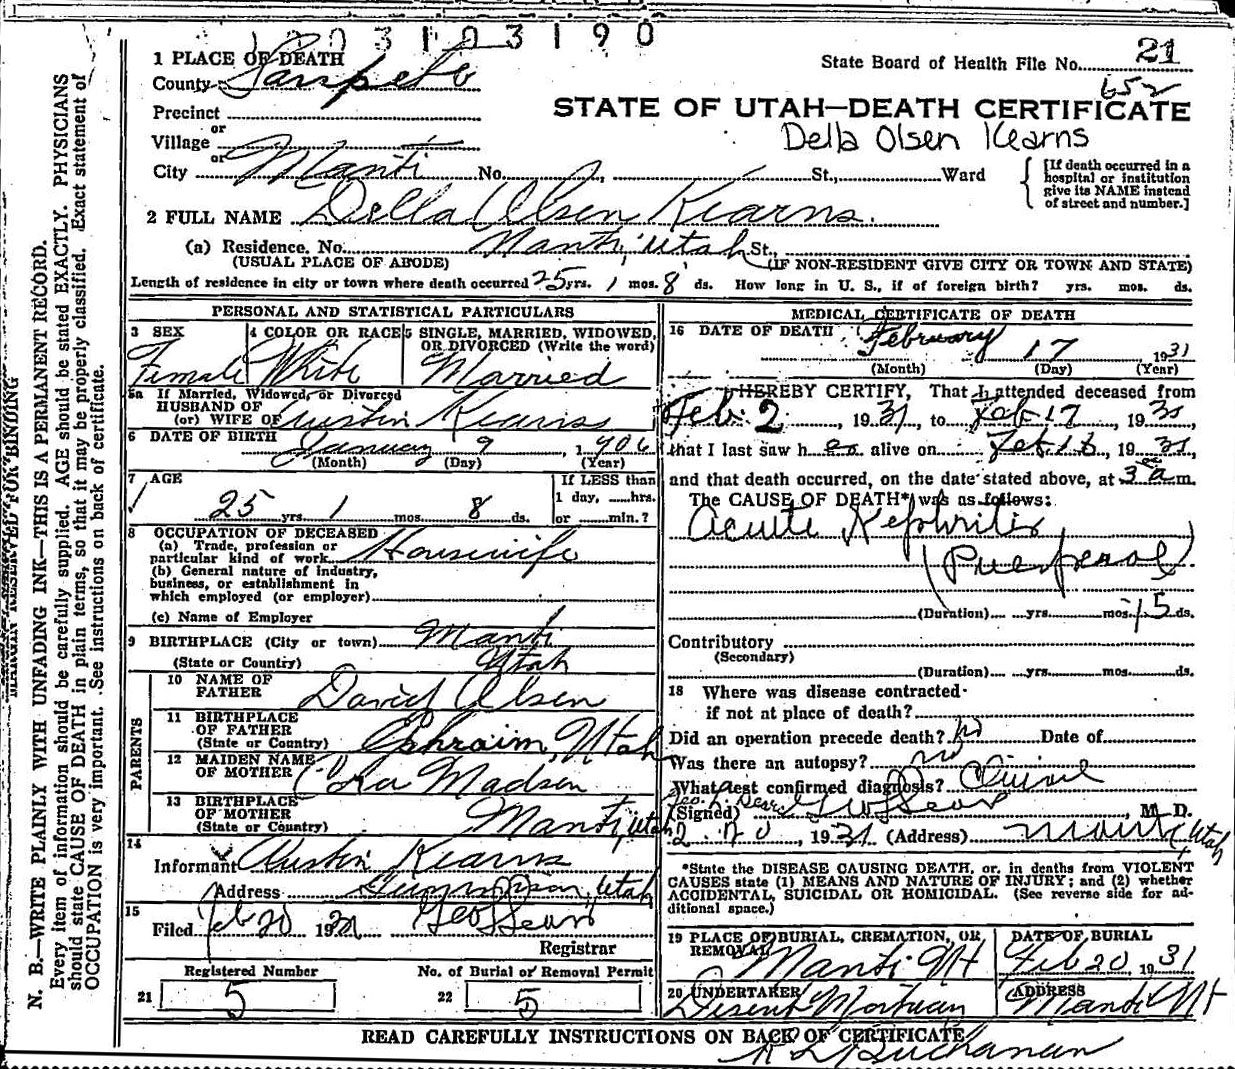 1003103190
1 PLACE OF DEATH
County Sanpete
State Board of Health File No. 21
652
Precinct
or
Village
or
City Manti No. St., Ward
STATE OF UTAH—DEATH CERTIFICATE
Della Olsen Kearns
[If death occurred in a
hospital or institution
give its NAME instead
of street and number.]
2 FULL NAME Della Olsen Kearns.
(a) Residence. No. Manti, Utah St.,
(USUAL PLACE OF ABODE) (IF NON-RESIDENT GIVE CITY OR TOWN AND STATE)
Length of residence in city or town where death occurred 25 yrs. 1 mos. 8 ds. How long in U. S., if of foreign birth? yrs. mos. ds.
PERSONAL AND STATISTICAL PARTICULARS
3 SEX
Female
4 COLOR OR RACE
White
5 SINGLE, MARRIED, WIDOWED,
OR DIVORCED (Write the word)
Married
5a If Married, Widowed, or Divorced
HUSBAND OF
(or) WIFE OF Austin Kearns
6 DATE OF BIRTH January 9, 1906
(Month) (Day) (Year)
7 AGE
25 yrs. 1 mos. 8 ds.
If LESS than
1 day, hrs.
or min.?
8 OCCUPATION OF DECEASED
(a) Trade, profession or
particular kind of work Housewife
(b) General nature of industry,
business, or establishment in
which employed (or employer)
(c) Name of Employer
9 BIRTHPLACE (City or town) Manti
(State or Country) Utah
PARENTS
10 NAME OF
FATHER David Olsen
11 BIRTHPLACE
OF FATHER
(State or Country) Ephraim, Utah
12 MAIDEN NAME
OF MOTHER Cora Madsen
13 BIRTHPLACE
OF MOTHER
(State or Country) Manti, Utah
14
Informant Austin Kearns
Address Gunnison, Utah
15
Filed Feb 20 1931 Geo L Sears
Registrar
Registered Number No. of Burial or Removal Permit
21 5 22 5
MEDICAL CERTIFICATE OF DEATH
16 DATE OF DEATH February 17 1931
(Month) (Day) (Year)
I HEREBY CERTIFY, That I attended deceased from
Feb. 2, 1931, to Feb 17, 1931,
that I last saw her alive on Feb 16, 1931,
and that death occurred, on the date stated above, at 3 a m.
The CAUSE OF DEATH* was as follows:
Acute Nephritis
(Puerperal)
(Duration) yrs. mos. 15 ds.
Contributory
(Secondary)
(Duration) yrs. mos. ds.
18 Where was disease contracted
if not at place of death?
Did an operation precede death? No Date of
Was there an autopsy? no
What test confirmed diagnosis? Clinical
Geo. L. Sears
(Signed) Geo L Sears, M. D.
2-20, 1931 (Address) Manti Utah
*State the DISEASE CAUSING DEATH, or, in deaths from VIOLENT
CAUSES state (1) MEANS AND NATURE OF INJURY; and (2) whether
ACCIDENTAL, SUICIDAL OR HOMICIDAL. (See reverse side for ad-
ditional space.)
19 PLACE OF BURIAL, CREMATION, OR
REMOVAL Manti Ut
DATE OF BURIAL
Feb 20, 1931
20 UNDERTAKER
Mortuary
ADDRESS
Manti Ut
READ CAREFULLY INSTRUCTIONS ON BACK OF CERTIFICATE
Buchanan
MARGIN RESERVED FOR BINDING
N. B.—WRITE PLAINLY WITH UNFADING INK—THIS IS A PERMANENT RECORD.
Every item of information should be carefully supplied. AGE should be stated EXACTLY. PHYSICIANS
should state CAUSE OF DEATH in plain terms, so that it may be properly classified. Exact statement of
OCCUPATION is very important. See instructions on back of certificate.